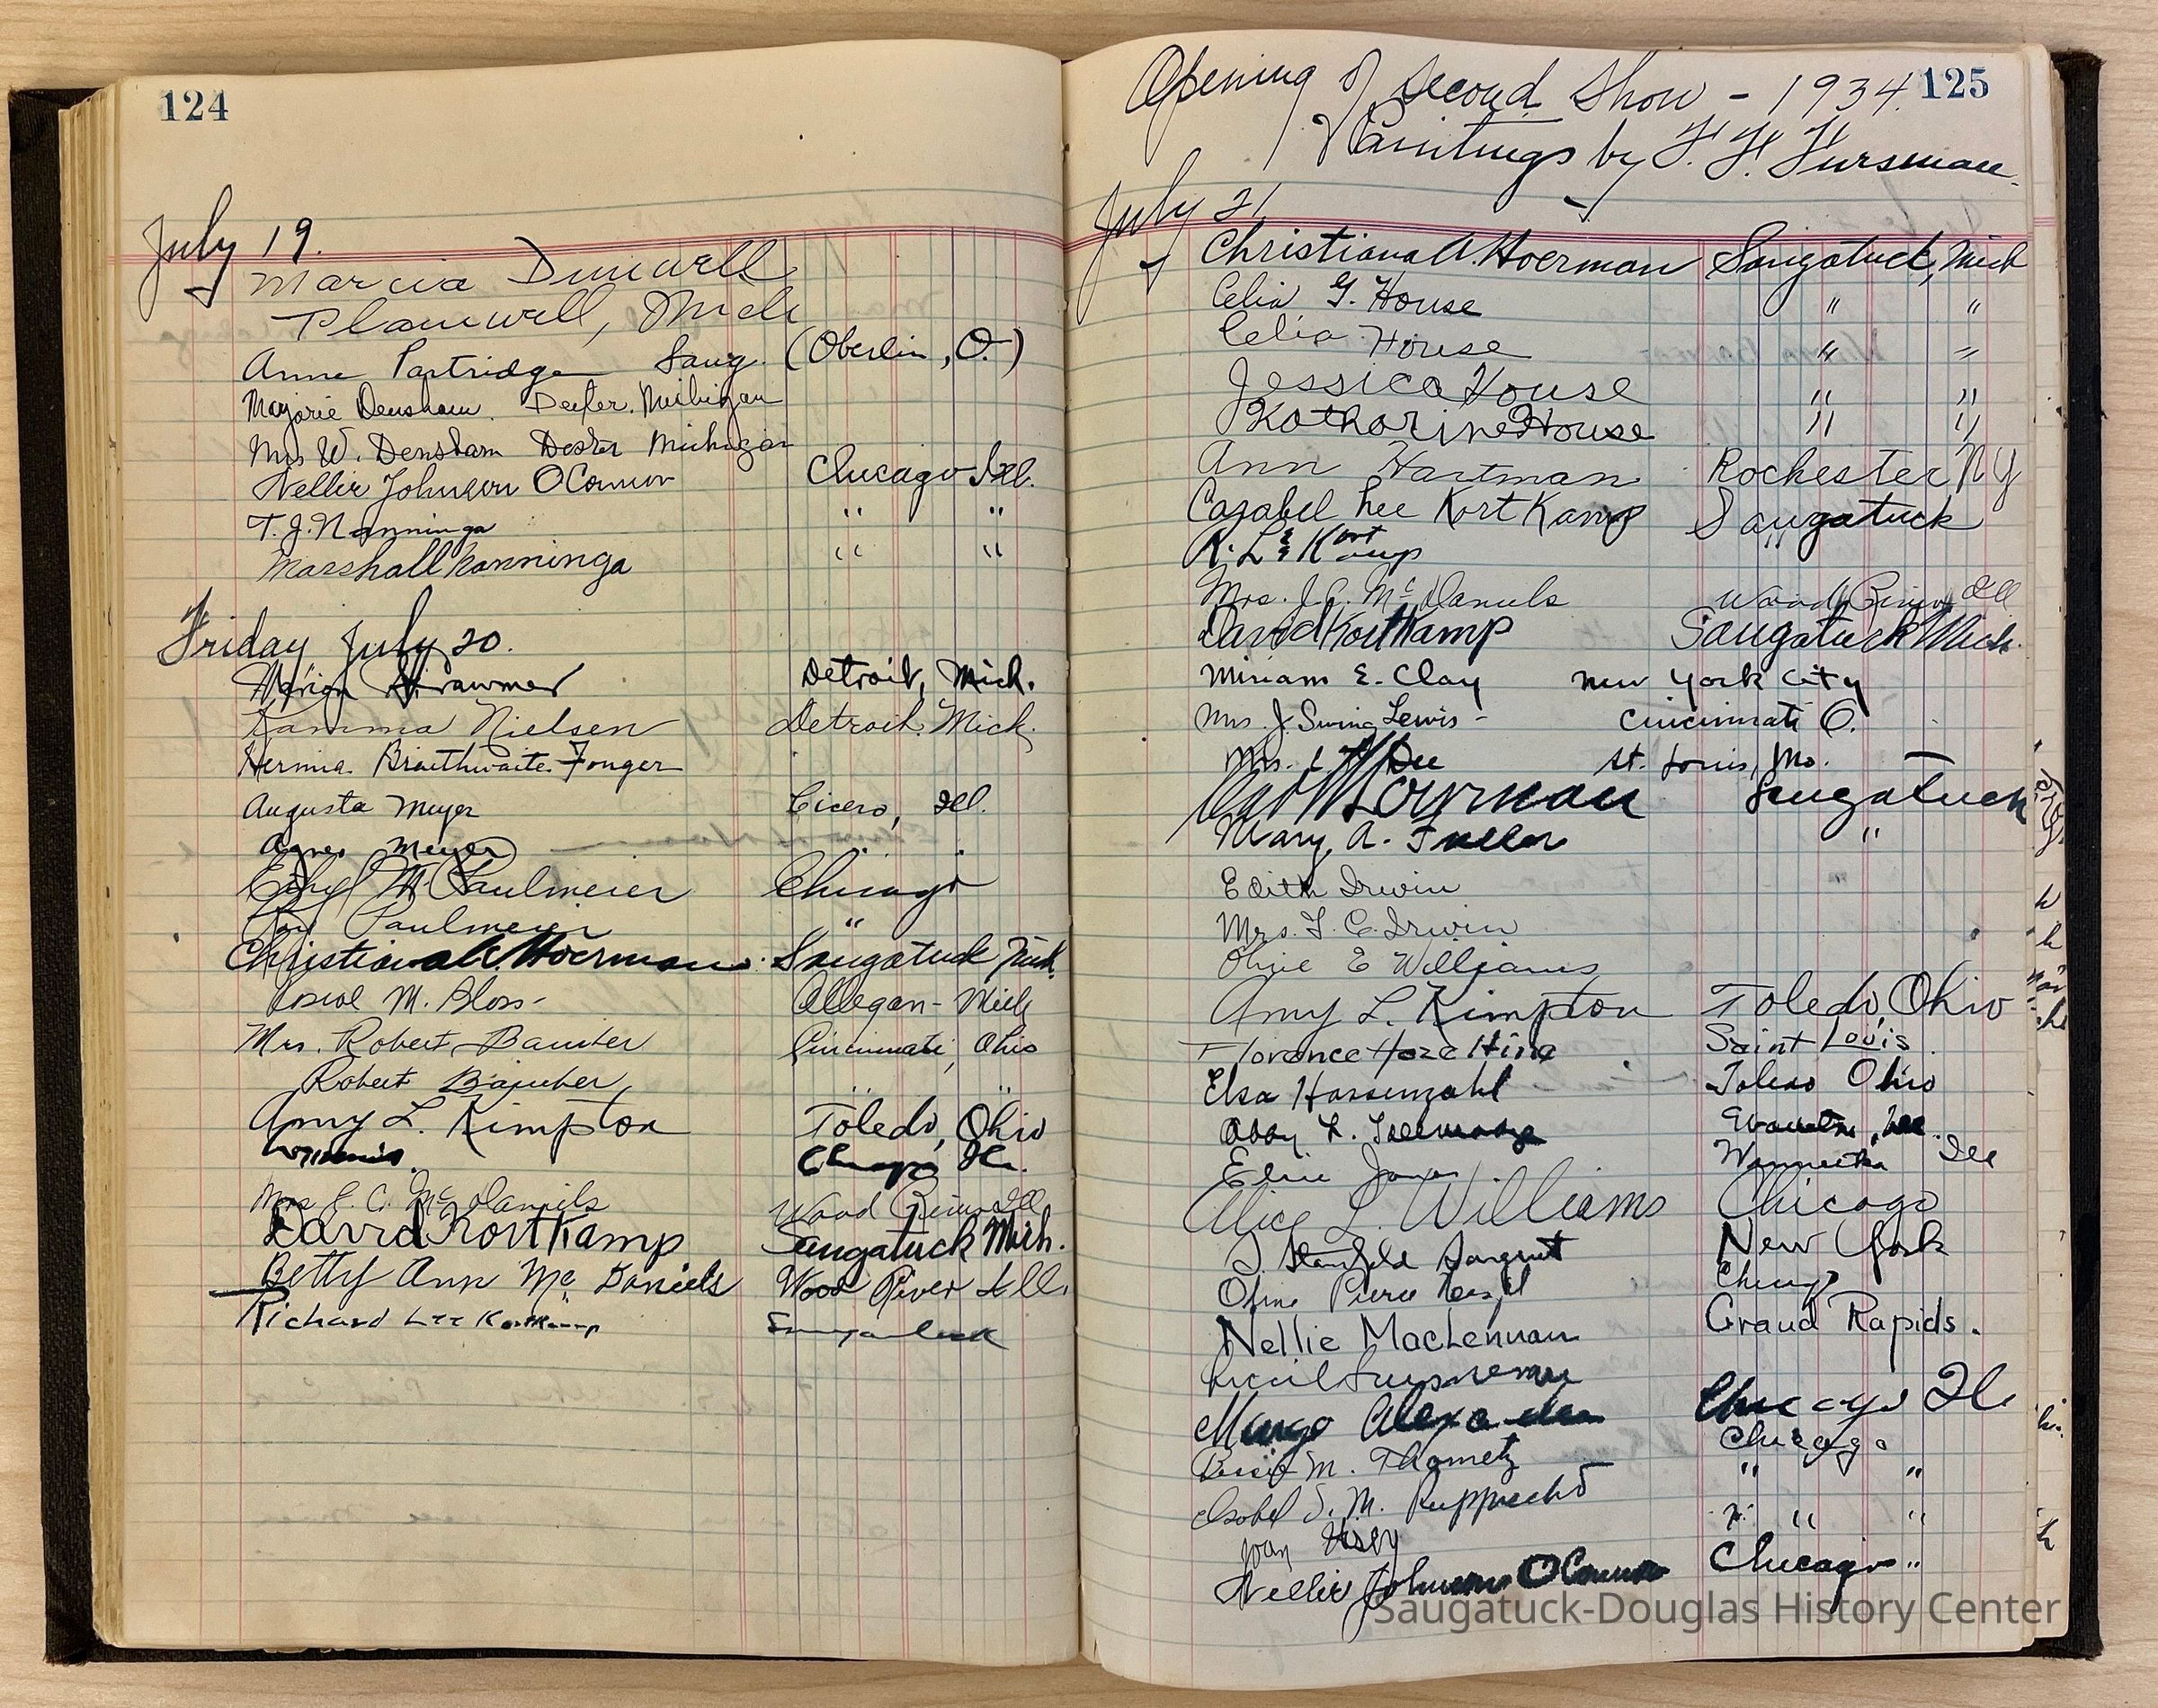 124
July 19.
Marcia Dunwell
Plainwell, Mich
Anne Partridge Saug. (Oberlin, O.)
Marjorie Densham. Dexter. Michigan
Mrs W. Densham Dexter Michigan
Nellie Johnson OConnor Chicago Ill.
T. J. Nanninga " "
Marshall Nanninga " "
Friday July 20.
Marion Detroit, Mich.
Kamma Nielsen Detroit. Mich.
Hermia Braithwaite Fonger
Augusta Meyer Cicero, Ill.
Agnes Meyer " "
Ethyl M. Paulmeier Chicago
Paulmeier "
Christiana A. Hoerman Saugatuck Mich.
M. Bloss - Allegan - Mich
Mrs. Robert Cincinnati, Ohio
Robert " "
Amy L. Kimpton Toledo, Ohio
Ill.
Mrs McDaniels Wood River Ill
David Kortkamp Saugatuck Mich.
Betty Ann McDaniels Wood River Ill.
Richard Lee Kortkamp Saugatuck
125
Opening of Second Show - 1934.
Paintings by F. F. Fursman.
July 21
Christiana A. Hoerman Saugatuck, Mich
Celia G. House " "
Celia House " "
Jessica House " "
Katharine House " "
Ann Hartman Rochester N Y
Lee KortKamp Saugatuck
R. L. Kortkamp "
Mrs. J. C. McDaniels Wood River Ill
David KortKamp Saugatuck Mich.
Miriam E. Clay New York City
Mrs. J. Swing Lewis - Cincinnati O.
Mrs. St. Louis, Mo.
Carl Hoerman Saugatuck
Mary A. Fuller "
Edith Irwin "
Mrs. F. C. Irwin
Olive E Williams
Amy L. Kimpton Toledo, Ohio
Florence Haze Hine Saint Louis
Elsa Hassenzahl Toledo Ohio
Abby L. Evanston, Ill.
Elsie Winnetka Ill
Alice L. Williams Chicago
Sargent New York
Chicago
Nellie MacLennan Grand Rapids.
Margo Alexander Chicago Ill
Bessie M. Thometz Chicago
Isobel S. M. Rupprecht " "
Joan " "
Nellie Johnson OConnor Chicago "
Saugatuck-Douglas History Center